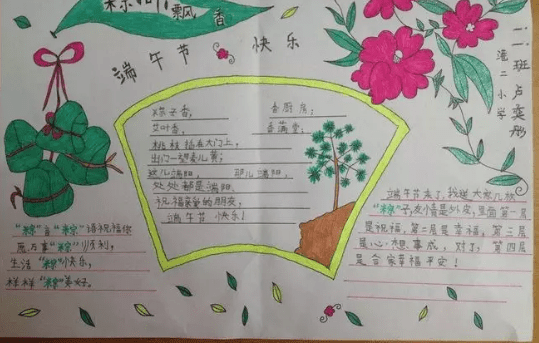 粽叶飘香
端午节 快乐
二一班 卢奕彤
港二小学
粽子香, 香厨房;
艾叶香, 香满堂;
桃枝插在大门上,
出门一望麦儿黄;
这儿端阳, 那儿端阳,
处处都是端阳,
祝福亲爱的朋友,
端午节 快乐!
"粽"言"粽"语祝福您
愿万事"粽"顺利,
生活"粽"快乐,
样样"粽"美好。
端午节来了,我送大家几颗
"粽"子,友情是外衣,里面第一层
是祝福,第二层是幸福,第三层
是心想事成,对了,第四层
是合家幸福平安!